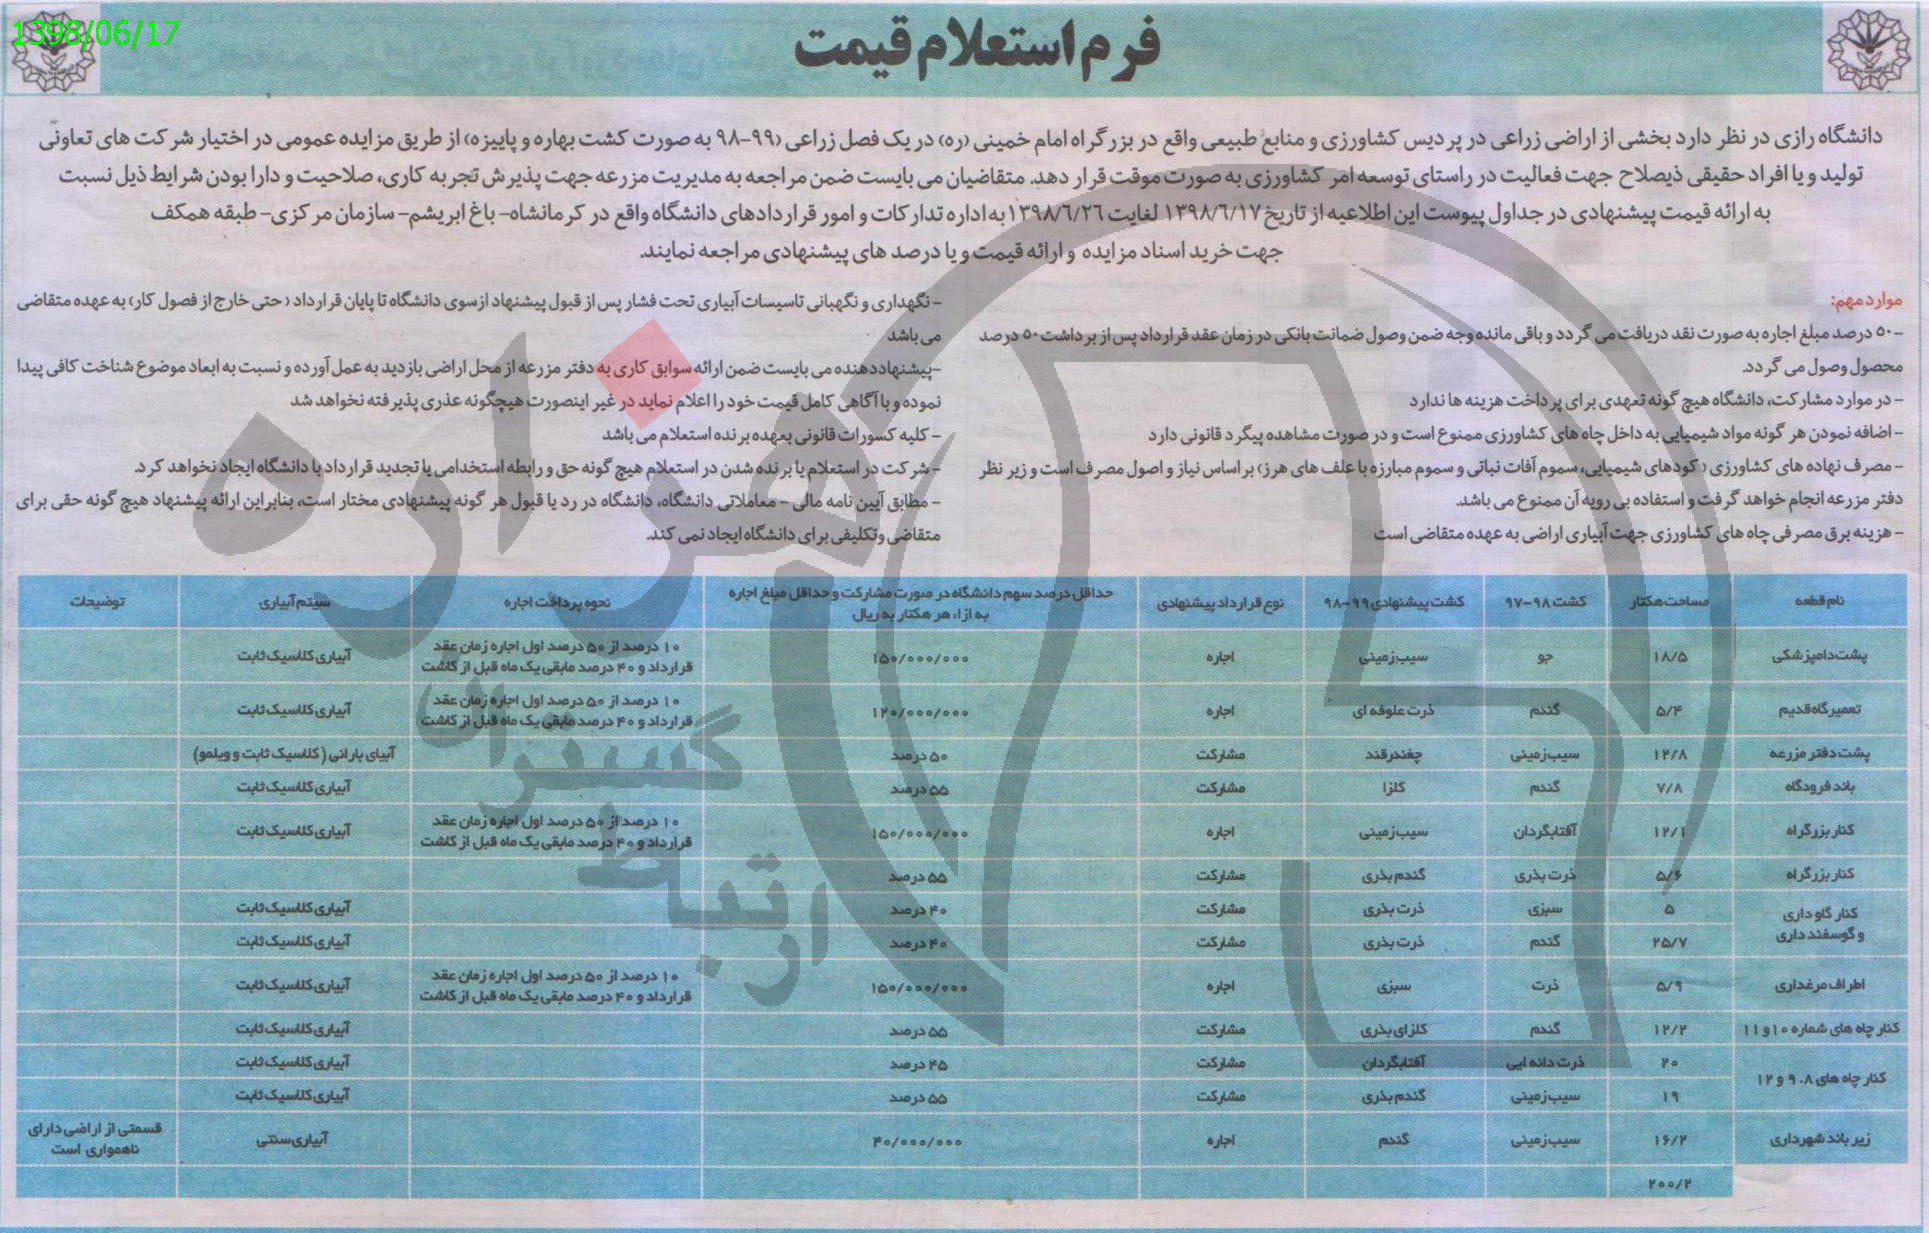 1398/06/17
فرم استعلام قیمت
دانشگاه رازی در نظر دارد بخشی از اراضی زراعی در پردیس کشاورزی و منابع طبیعی واقع در بزرگراه امام خمینی (ره) در یک فصل زراعی (۹۹-۹۸ به صورت کشت بهاره و پاییزه) از طریق مزایده عمومی در اختیار شرکت های تعاونی
تولید و یا افراد حقیقی ذیصلاح جهت فعالیت در راستای توسعه امر کشاورزی به صورت موقت قرار دهد. متقاضیان می بایست ضمن مراجعه به مدیریت مزرعه جهت پذیرش تجربه کاری، صلاحیت و دارا بودن شرایط ذیل نسبت
به ارائه قیمت پیشنهادی در جداول پیوست این اطلاعیه از تاریخ ۱۳۹۸/۶/۱۷ لغایت ۱۳۹۸/۶/۲۶ به اداره تدارکات و امور قراردادهای دانشگاه واقع در کرمانشاه- باغ ابریشم- سازمان مرکزی- طبقه همکف
جهت خرید اسناد مزایده و ارائه قیمت و یا درصد های پیشنهادی مراجعه نمایند.
موارد مهم:
-۵۰ درصد مبلغ اجاره به صورت نقد دریافت می گردد و باقی مانده وجه ضمن وصول ضمانت بانکی در زمان عقد قرارداد پس از برداشت ۵۰ درصد
محصول وصول می گردد.
- در موارد مشارکت، دانشگاه هیچ گونه تعهدی برای پرداخت هزینه ها ندارد
- اضافه نمودن هر گونه مواد شیمیایی به داخل چاه های کشاورزی ممنوع است و در صورت مشاهده پیگرد قانونی دارد
- مصرف نهاده های کشاورزی (کودهای شیمیایی، سموم آفات نباتی و سموم مبارزه با علف های هرز) بر اساس نیاز و اصول مصرف است و زیر نظر
دفتر مزرعه انجام خواهد گرفت و استفاده بی رویه آن ممنوع می باشد.
- هزینه برق مصرفی چاه های کشاورزی جهت آبیاری اراضی به عهده متقاضی است
- نگهداری و نگهبانی تاسیسات آبیاری تحت فشار پس از قبول پیشنهاد از سوی دانشگاه تا پایان قرارداد (حتی خارج از فصول کار) به عهده متقاضی
می باشد
-پیشنهاددهنده می بایست ضمن ارائه سوابق کاری به دفتر مزرعه از محل اراضی بازدید به عمل آورده و نسبت به ابعاد موضوع شناخت کافی پیدا
نموده و با آگاهی کامل قیمت خود را اعلام نماید در غیر اینصورت هیچگونه عذری پذیرفته نخواهد شد
- کلیه کسورات قانونی بعهده برنده استعلام می باشد
- شرکت در استعلام یا برنده شدن در استعلام هیچ گونه حق و رابطه استخدامی یا تجدید قرارداد با دانشگاه ایجاد نخواهد کرد.
- مطابق آیین نامه مالی - معاملاتی دانشگاه، دانشگاه در رد یا قبول هر گونه پیشنهادی مختار است، بنابراین ارائه پیشنهاد هیچ گونه حقی برای
متقاضی وتکلیفی برای دانشگاه ایجاد نمی کند.
نام قطعه مساحت هکتار کشت ۹۸-۹۷ کشت پیشنهادی ۹۹-۹۸ نوع قرارداد پیشنهادی حداقل درصد سهم دانشگاه در صورت مشارکت و حداقل مبلغ اجاره به ازاء هر هکتار به ریال نحوه پرداخت اجاره سیتم آبیاری توضیحات
پشت دامپزشکی ۱۸/۵ جو سیب زمینی اجاره ۱۵۰/۰۰۰/۰۰۰ ۱۰ درصد از ۵۰ درصد اول اجاره زمان عقد قرارداد و ۴۰ درصد مابقی یک ماه قبل از کاشت آبیاری کلاسیک ثابت
تعمیرگاه قدیم ۵/۴ گندم ذرت علوفه ای اجاره ۱۲۰/۰۰۰/۰۰۰ ۱۰ درصد از ۵۰ درصد اول اجاره زمان عقد قرارداد و ۴۰ درصد مابقی یک ماه قبل از کاشت آبیاری کلاسیک ثابت
پشت دفتر مزرعه ۱۲/۸ سیب زمینی چغندرقند مشارکت ۵۰ درصد آبیای بارانی (کلاسیک ثابت و ویلمو)
باند فرودگاه ۷/۸ گندم کلزا مشارکت ۵۵ درصد آبیاری کلاسیک ثابت
کنار بزرگراه ۱۲/۱ آفتابگردان سیب زمینی اجاره ۱۵۰/۰۰۰/۰۰۰ ۱۰ درصد از ۵۰ درصد اول اجاره زمان عقد قرارداد و ۴۰ درصد مابقی یک ماه قبل از کاشت آبیاری کلاسیک ثابت
کنار بزرگراه ۵/۶ ذرت بذری گندم بذری مشارکت ۵۵ درصد
کنار گاوداری و گوسفند داری ۵ سبزی ذرت بذری مشارکت ۴۰ درصد آبیاری کلاسیک ثابت
۲۵/۷ گندم ذرت بذری مشارکت ۴۰ درصد آبیاری کلاسیک ثابت
اطراف مرغداری ۵/۹ ذرت سبزی اجاره ۱۵۰/۰۰۰/۰۰۰ ۱۰ درصد از ۵۰ درصد اول اجاره زمان عقد قرارداد و ۴۰ درصد مابقی یک ماه قبل از کاشت آبیاری کلاسیک ثابت
کنار چاه های شماره ۱۰ و ۱۱ ۱۲/۲ گندم کلزای بذری مشارکت ۵۵ درصد آبیاری کلاسیک ثابت
کنار چاه های ۹،۸ و ۱۲ ۲۰ ذرت دانه ایی آفتابگردان مشارکت ۴۵ درصد آبیاری کلاسیک ثابت
۱۹ سیب زمینی گندم بذری مشارکت ۵۵ درصد آبیاری کلاسیک ثابت
زیر باند شهرداری ۱۶/۲ سیب زمینی گندم اجاره ۴۰/۰۰۰/۰۰۰ آبیاری سنتی قسمتی از اراضی دارای ناهمواری است
۲۰۰/۲
هزاره
گستران
ارتباط